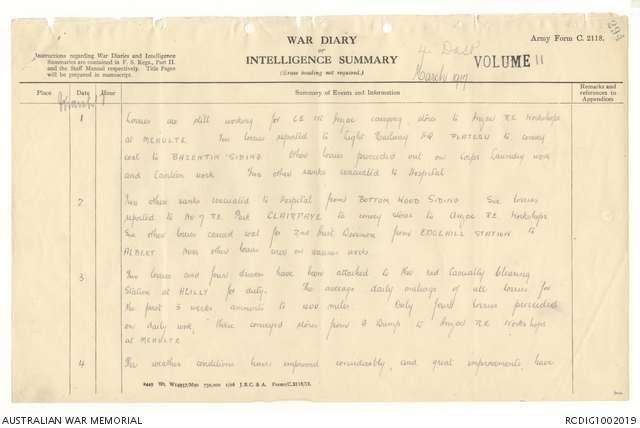 294
Army Form C. 2118.
WAR DIARY
or
INTELLIGENCE SUMMARY
(Erase heading not required.)
Instructions regarding War Diaries and Intelligence
Summaries are contained in F. S. Regs., Part II.
and the Staff Manual respectively. Title Pages
will be prepared in manuscript.
March 1917
VOLUME 11
Place Date Hour Summary of Events and Information Remarks and references to Appendices
March
1 Lorries are still working for CE 1st Anzac carrying stores to Anzac R.E. Workshops
at MEAULTE Two lorries reported to Light Railway HQ PLATEAU to convey
coal to BAZENTIN SIDING Other lorries proceeded out on Corps Laundry work
and Canteen work Two other ranks evacuated to Hospital
2 Two other ranks evacuated to Hospital from BOTTOM WOOD SIDING Six lorries
reported to R.E. Park CLAIRFAYE to convey stores to Anzac R.E. Workshops
Six other lorries carried coal for 2nd Aust Division from EDGEHILL STATION to
ALBERT other lorries used on various work
3 Two lorries and four drivers have been attached to the 3rd Casualty Clearing
Station at HEILLY for duty. The average daily mileage of all lorries for
the past 3 weeks amounts to miles. Only four lorries proceeded
on daily work, these conveyed stores from Dump to Anzac R.E. Workshops
at MEAULTE
4 The weather conditions have improved considerably, and great improvements, have
AUSTRALIAN WAR MEMORIAL
RCDIG1002019